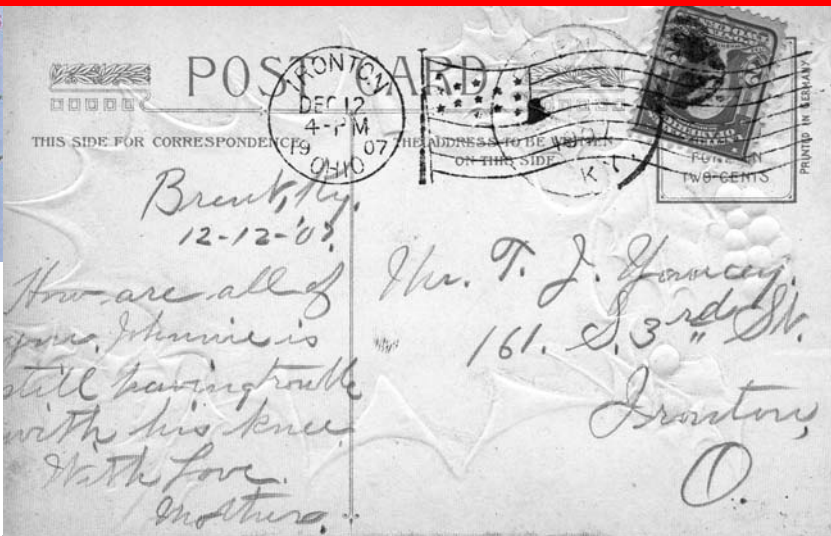 POST CARD
IRONTON
DEC 12
4-PM
19 07
OHIO
THIS SIDE FOR CORRESPONDENCE
THE ADDRESS TO BE WRITTEN
ON THIS SIDE
TWO CENTS
PRINTED IN GERMANY
KY
Brent, Ky.
12-12-'07.
How are all of
you. Johnnie is
still having trouble
with his knee.
With Love.
Mother.
Mr. T. J. Yancey.
161. S. 3rd St.
Ironton,
O.